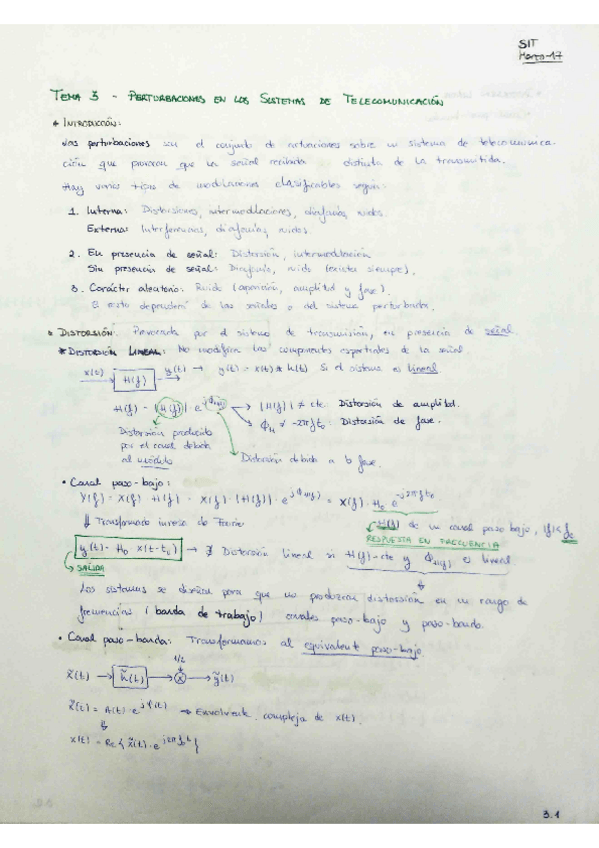 SIT
Marzo-17
TEMA 3 - PERTURBACIONES EN LOS SISTEMAS DE TELECOMUNICACIÓN
* INTRODUCCIÓN:
Las perturbaciones son el conjunto de actuaciones sobre un sistema de telecomunica-
ción que provocan que la señal recibida distinta de la transmitida.
Hay varios tipos de modulaciones clasificables según:
1. Interna: Distorsiones, intermodulaciones, diafonías, ruidos.
Externa: Interferencias, diafonías, ruidos.
2. En presencia de señal: Distorsión, Intermodulación
Sin presencia de señal: Diafonía, ruido (existe siempre).
3. Carácter aleatorio: Ruido (aparición, amplitud y fase).
El resto dependerá de las señales o del sistema perturbada.
* DISTORSIÓN: Provocada por el sistema de transmisión, en presencia de señal.
* DISTORSIÓN LINEAL: No modifica las componentes espectrales de la señal.
x(t) → H(f) → y(t) → y(t) = x(t) * h(t) Si el sistema es lineal
H(f) = |H(f)| e^jΦH(f) → |H(f)| ≠ cte. Distorsión de amplitud.
ΦH ≠ -2πft₀ : Distorsión de fase.
Distorsión producida
por el canal debida
al módulo
Distorsión debida a la fase.
• Canal paso-bajo:
Y(f) = X(f) · H(f) = X(f) · |H(f)| · e^jΦH(f) = X(f) · H₀ e^-j2πft₀
⇓ Transformada inversa de Fourier
H(f) de un canal paso bajo, |f|<fc
RESPUESTA EN FRECUENCIA
y(t) = H₀ x(t-t₀) → ∄ Distorsión lineal si H(f)=cte y ΦH(f) es lineal
SALIDA
Los sistemas se diseñan para que no produzcan distorsión en un rango de
frecuencias (banda de trabajo) canales paso-bajo y paso-banda.
• Canal paso-banda: Transformamos al equivalente paso-bajo.
1/2
x̃(t) → h̃(t) → ⊗ → ỹ(t)
x̃(t) = A(t) · e^jφ(t) → Envolvente compleja de x(t).
⇓
x(t) = Re{x̃(t) · e^j2πf₀t}
3.1